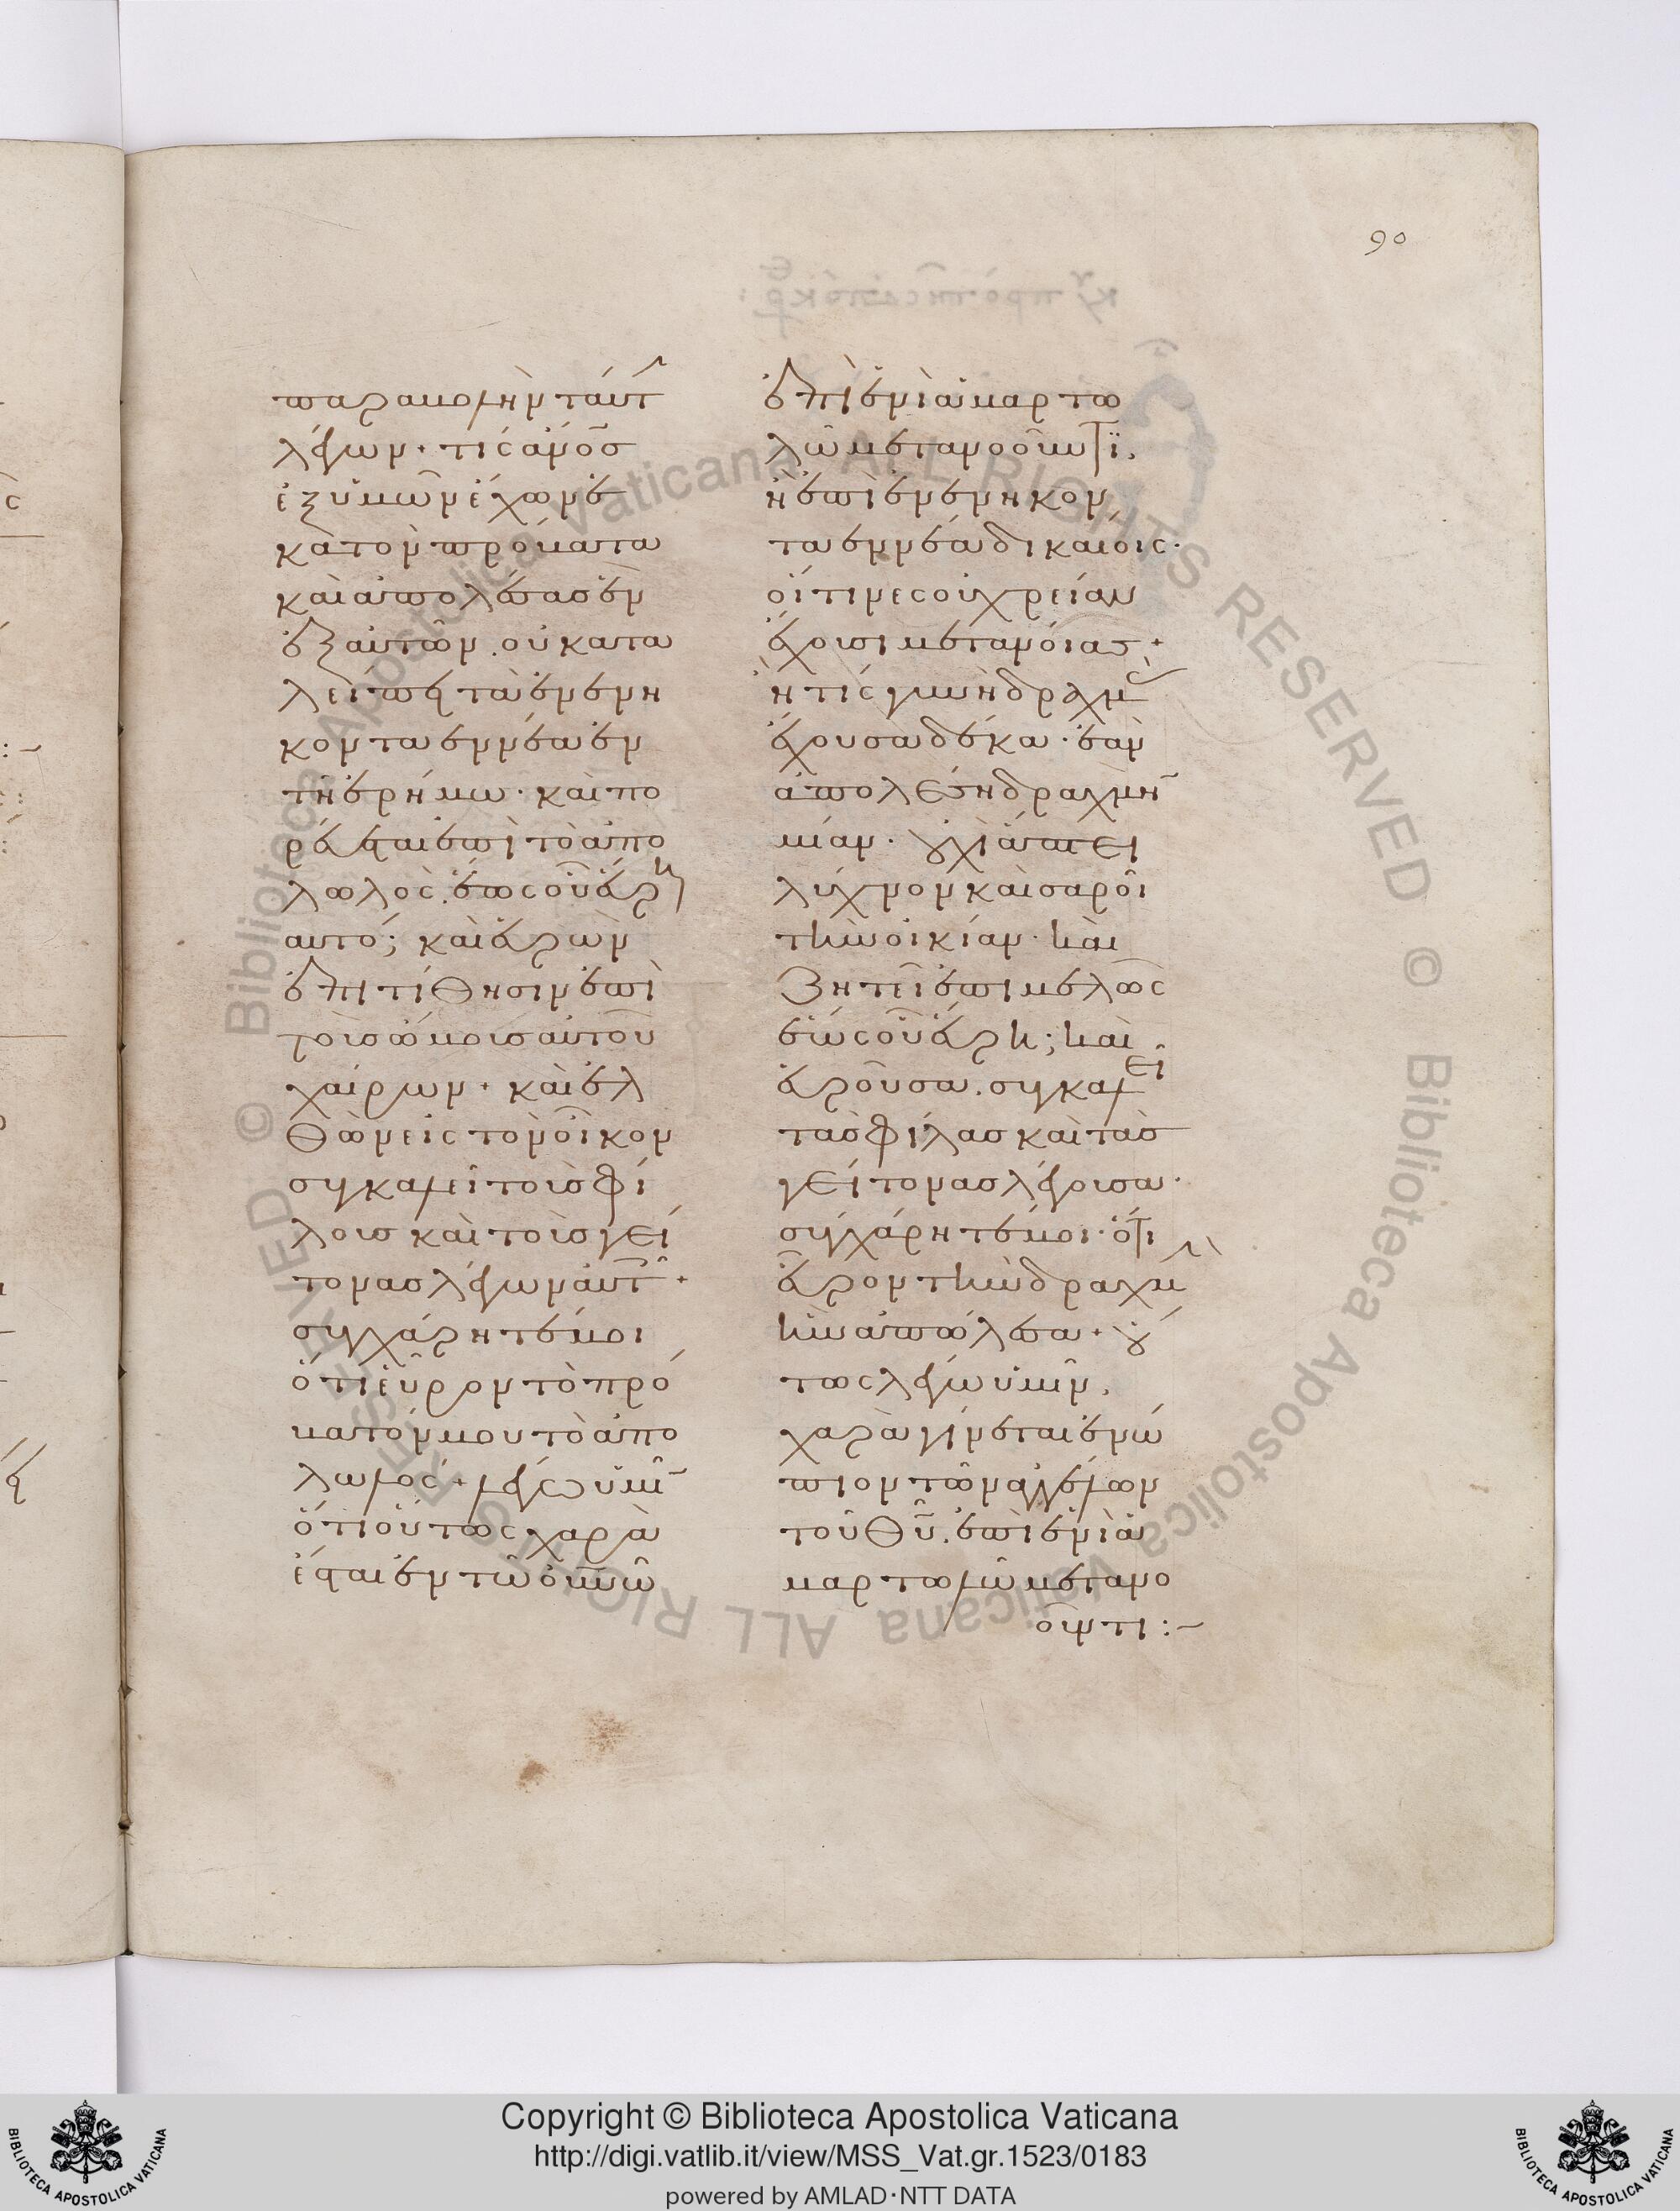 90
παραβολὴν ταύτ
λέγων· τίς ἄνος
ἐξ ὑμῶν ἔχων ἑ
κατὸν πρόβατα
καὶ ἀπολέσας ἓν
ἐξ αὐτῶν. οὐ κατα
λείπει τὰ ἐνενη
κονταεννέα ἐν
τῇ ἐρήμω· καὶ πο
ρεύεται ἐπὶ τὸ ἀπο
λωλὸς. ἕως οὗ εὕρη
αυτό; καὶ εὑρὼν
ἐπιτίθησιν ἐπὶ
τοὺς ὤμους αὐτοῦ
χαίρων· καὶ ἐλ
θὼν εἰς τὸν οἶκον
συγκαλεῖ τοὺς φί
λους καὶ τοὺς γεί
τονας λέγων αὐτοῖ·
συγχάρητέ μοι
ὅτι εὗρον τὸ πρό
βατόν μου τὸ ἀπο
λωλός· λέγω ὑμῖ
ὅτι οὕτως χαρὰ
ἔσται ἐν τῶ οὐνῶ
ἐπὶ ἑνὶ ἁμαρτω
λῶ μετανοοῦντϊ.
ἢ ἐπὶ ἐνενηκον
ταεννέα δικαίοις·
οἵτινες οὐ χρείαν
ἔχουσι μετανοίας·
ἢ τίς γυνὴ δραχμ
ἔχουσα δέκα· ἐὰν
ἀπολέση δραχμὴ
μίαν· οὐχὶ ἅπτει
λύχνον καὶ σαροῖ
τὴν οἰκίαν· καὶ
ζητεῖ ἐπιμελῶς
ἕως οὗ εὕρη; καὶ
εὑροῦσα. συγκαλεῖ
τὰς φίλας καὶ τὰς
γείτονας λέγουσα·
συγχάρητέ μοι· ὅτι
εὗρον τὴν δραχμὴ
ἣν ἀπώλεσα· οὕ
τως λέγω ὑμῖν.
χαρὰ γίνεται ἐνώ
πιον τῶν ἀγγέλων
τοῦ θῦ. ἐπὶ ἑνὶ ἁ
μαρτωλῶ μετανο
οῦντι:~
Copyright © Biblioteca Apostolica Vaticana
http://digi.vatlib.it/view/MSS_Vat.gr.1523/0183
powered by AMLAD·NTT DATA